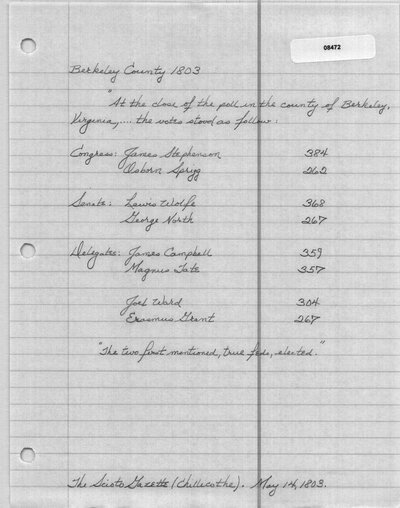 08472
Berkeley County 1803
"At the close of the poll in the county of Berkeley,
Virginia,.... the votes stood as follow:
Congress: James Stephenson 384
Osborn Sprigg 262
Senate: Lewis Wolfe 368
George North 267
Delegates: James Campbell 359
Magnus Tate 357
Joel Ward 304
Erasmus Grant 267
"The two first mentioned, true feds, elected."
The Scioto Gazette (Chillicothe). May 14, 1803.